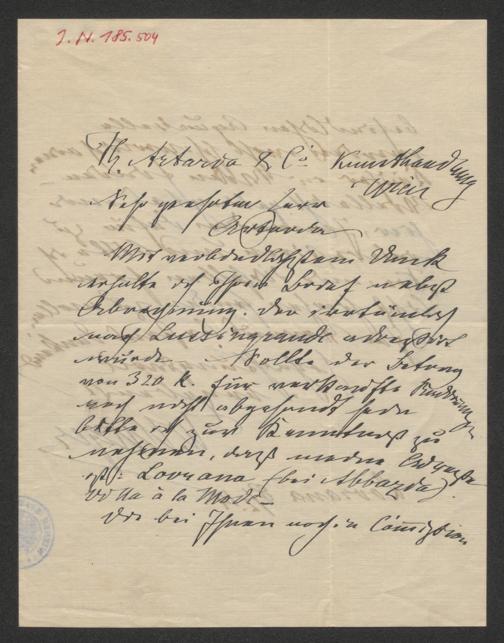 J. N. 185.504
Th. Artaria & Co Kunsthandlung
Wien
Sehr geehrter Herr
Artaria
Mit verbindlichstem Dank
erhalte ich Ihren Brief nebst
Abrechnung. der irrtümlich
nach Lussingrande adressirt
wurde. Sollte der Betrag
von 320 K. für verkaufte Radirungen
noch nicht abgesandt sein
bitte ich zur Kenntniß zu
nehmen, daß meine Adresse
ist: Lovrana (bei Abbazia).
Villa à la Mode
Die bei Ihnen noch in Comission